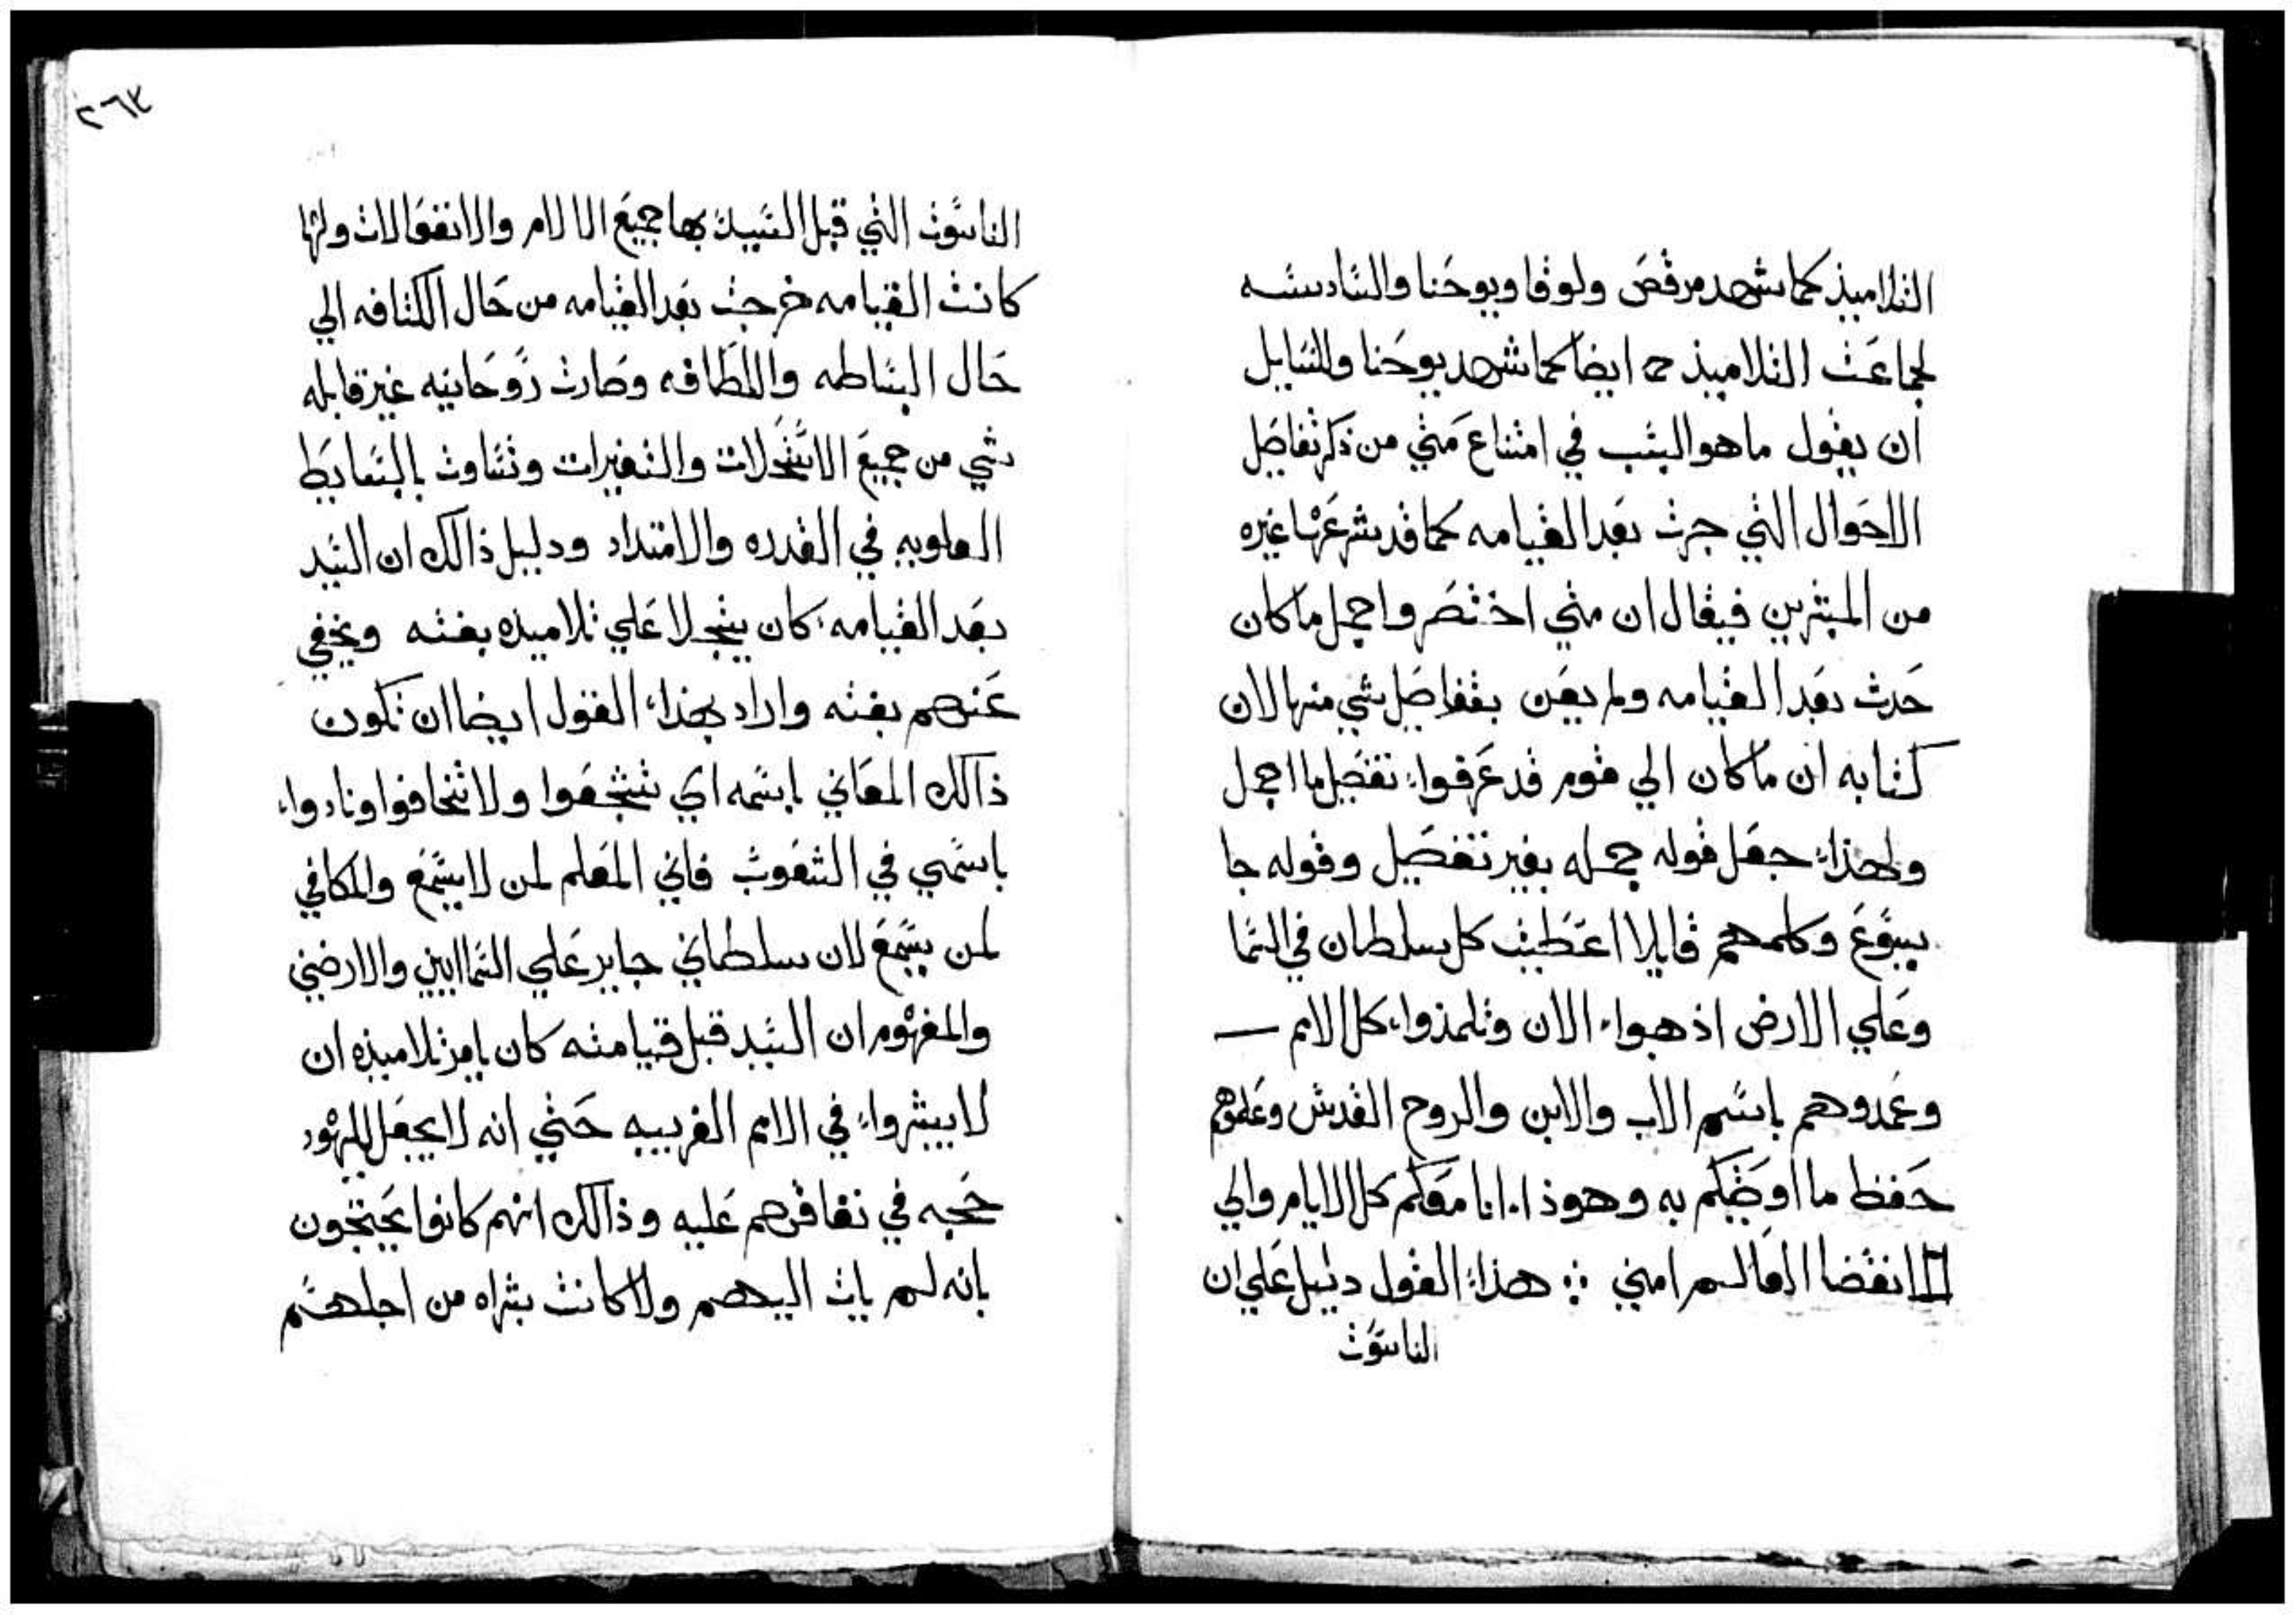 التلاميذ كما شهد مرقص ولوقا ويوحنا والسادسه
لجماعت التلاميذ ايضا كما شهد يوحنا وللسايل
ان يقول ما هو السبب في امتناع متي من ذكر تفاصيل
الاحوال التي جرت بعد القيامه كما قد شرعها غيره
من المبشرين فيقال ان متي اختصر واجمل ما كان
حدث بعد القيامه ولم يعن بتفاصيل شي منها لان
كتابه ان ما كان الي قوم قد عرفوا تفصيل ما اجمل
ولهذا جعل قوله جمله بغير تفصيل وقوله جا
يسوع وكلمهم قايلا اعطيت كل سلطان في السما
وعلي الارض اذهبوا الان وتلمذوا كل الامم
وعمدوهم باسم الاب والابن والروح القدس وعلموهم
حفظ ما اوصيكم به وهوذا انا معكم كل الايام والي
انقضا العالم امين ❖ هذا القول دليل علي ان
الناسوت
٢٦٣
الناسوت التي قبل السيد بها جميع الالام والانفعالات ولها
كانت القيامه خرجت بعد القيامه من حال الكثافه الي
حال البساطه واللطافه وصارت روحانيه غير قابله
شي من جميع الاستحلات والتغيرات وتساوت بالبسايط
العلويه في القدره والامتداد ودليل ذالك ان السيد
بعد القيامه كان يتجلا علي تلاميذه بغته ويخفي
عنهم بغته واراد بهذا القول ايضا ان تكون
ذالك المعاني باسمه اي تشجعوا ولا تخافوا ونادوا
باسمي في الشعوب فاني المعلم لمن لا يسمع والمكافي
لمن يسمع لان سلطاني جايز علي السماايين والارضيي
والمفهوم ان السيد قبل قيامته كان يامر تلاميذه ان
لا يبشروا في الامم الغريبه حتي انه لا يجعل لليهود
حجه في نفاقهم عليه وذالك انهم كانوا يحتجون
بانه لم يات اليهم ولا كانت بشراه من اجلهم